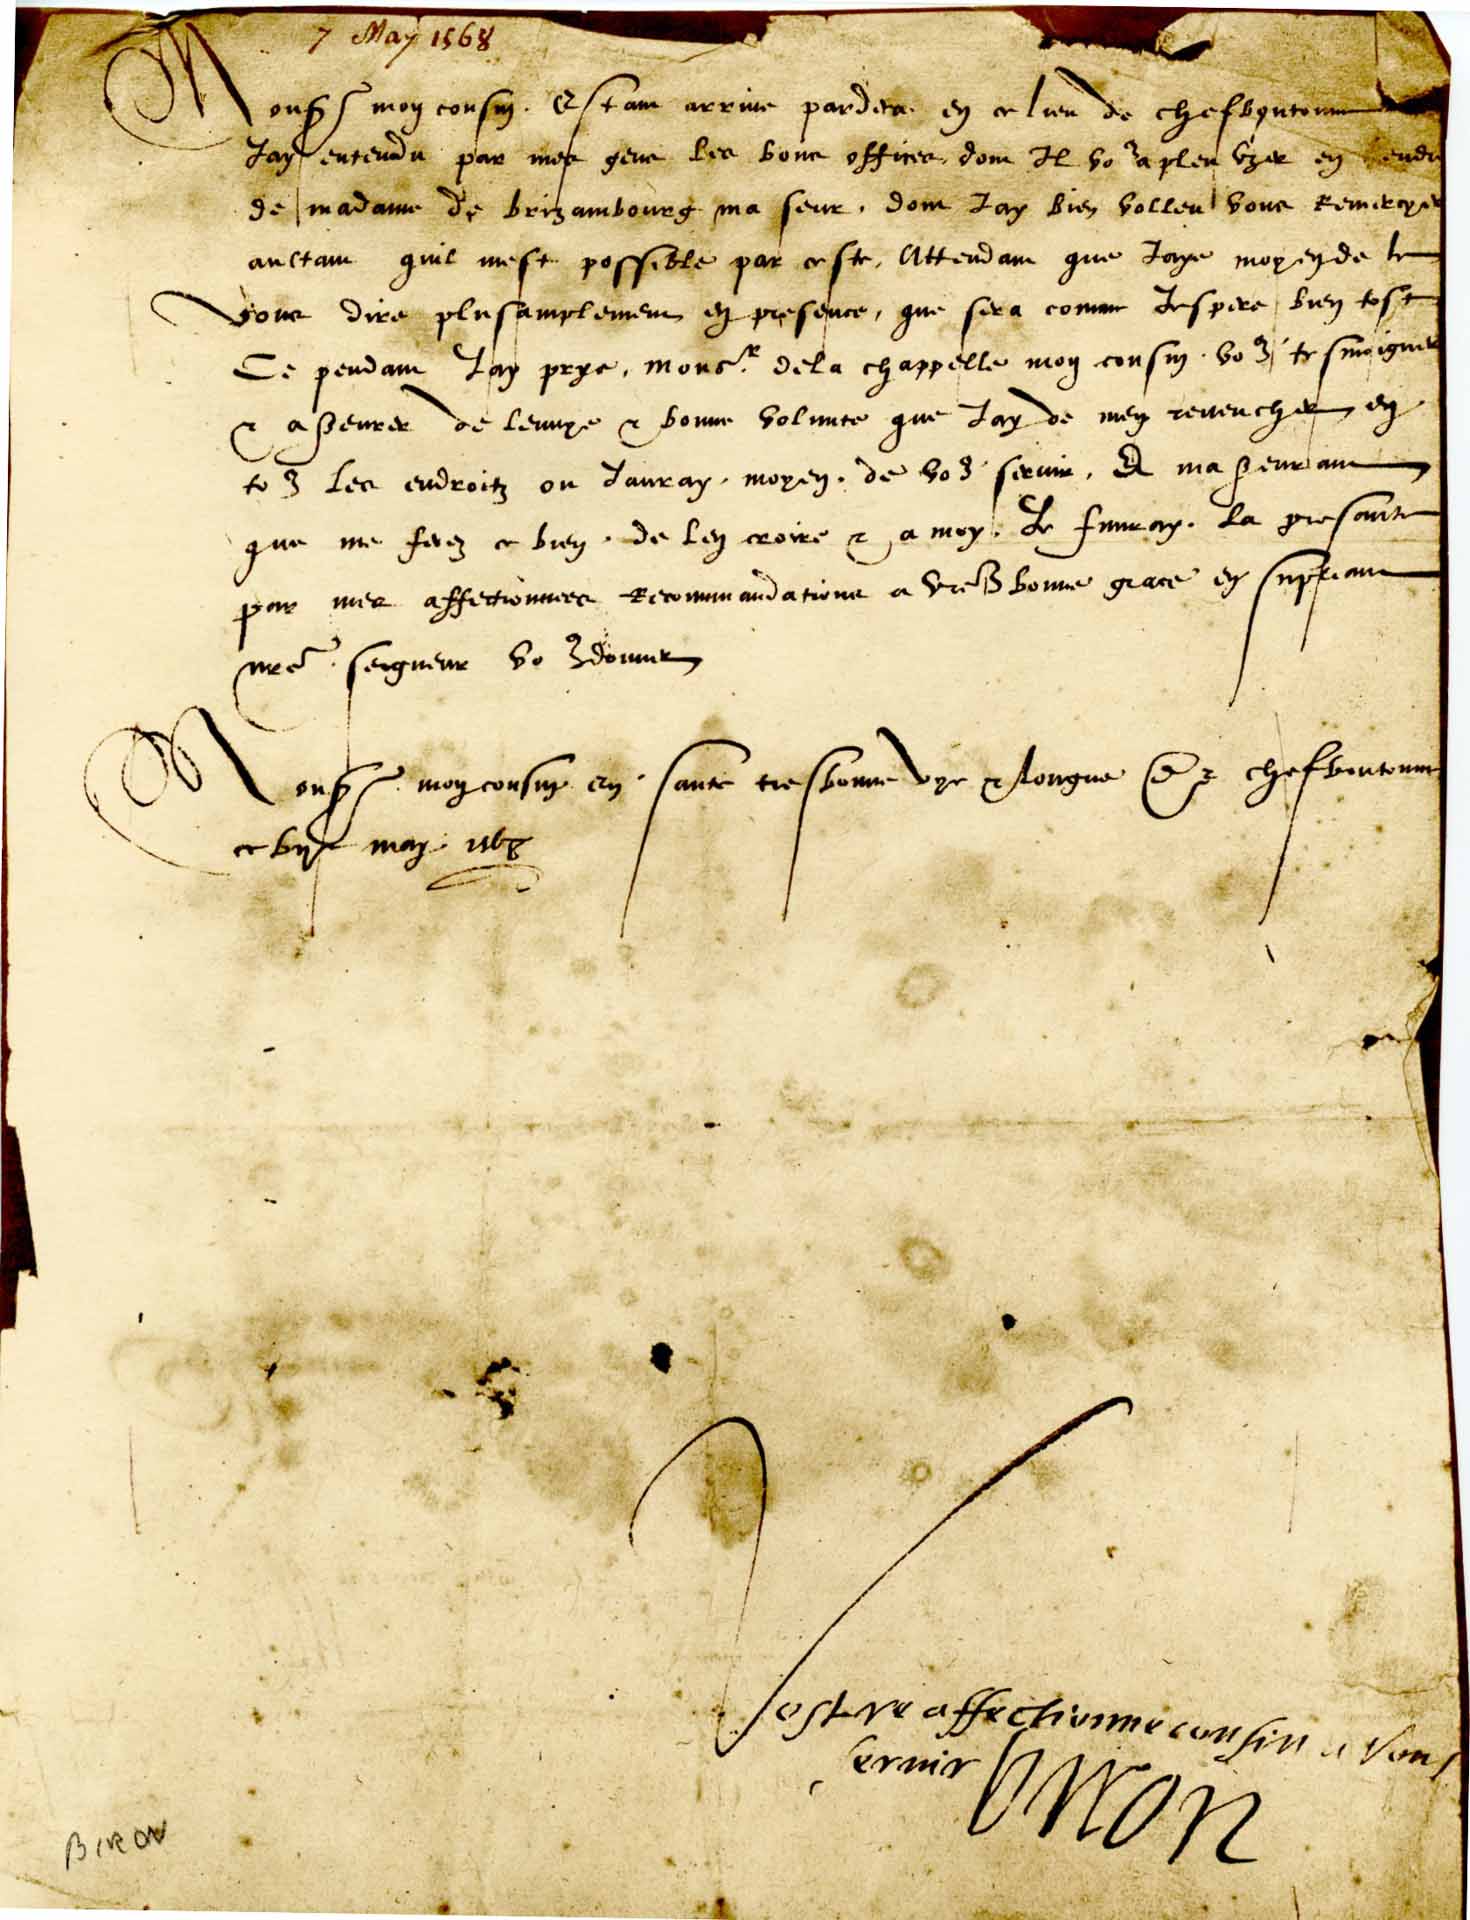 7 May 1568
Monsr mon cousin. Estant arrive pardeca en ce lieu de chefboutonne
Jay entendu par mes gens les bons offices dont Il vo9 a pleu uzer en
de madame de brizambourg ma seur, dont Jay bien volleu vous Remercyer
aultant quil mest possible par ceste, Attendant que Jaye moyen de le
vous dire plus amplement en presence, que sera comme Jespere bien tost
Ce pendant Jay prye, monsr. de la chappelle mon cousin vo9 tesmoigner
& asseurer de lenvye & bonne volunte que Jay de men revencher en
to9 les endroitz ou Jauray moyen de vo9 servir, Et masseurant
que me ferez ce bien de len croire & a moy. Je finiray la presante
par mes affectionnees Recommandations a vre bonne grace en supliant
nre seigneur vo9 donner
Monsr mon cousin en sante tresbonne vye & longue De chefboutonne
ce vije may 1568
Vostre affectionne cousin a vous
servir
biron
BIRON